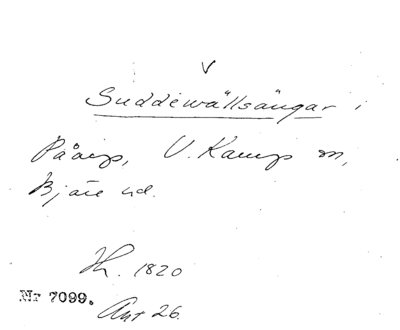 v
Suddewällsängar i
Påarp, V. Karup sn,
Bjäre hd.
Jh. 1820
Nr 7099.
Akt 26.